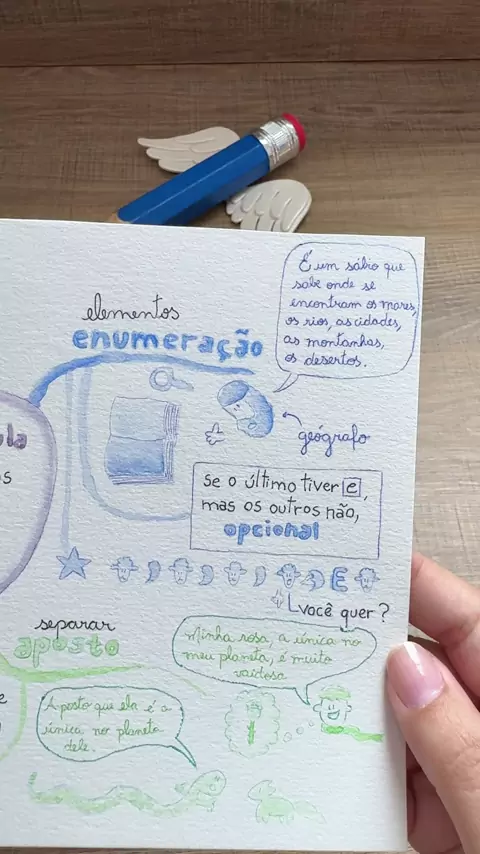 elementos
enumeração
É um sábio que
sabe onde se
encontram os mares,
os rios, as cidades,
as montanhas,
os desertos.
geógrafo
se o último tiver e,
mas os outros não,
opcional
E
você quer?
separar
aposto
Minha rosa, a única no
meu planeta, é muito
vaidosa
Aposto que ela é a
única no planeta
dele.